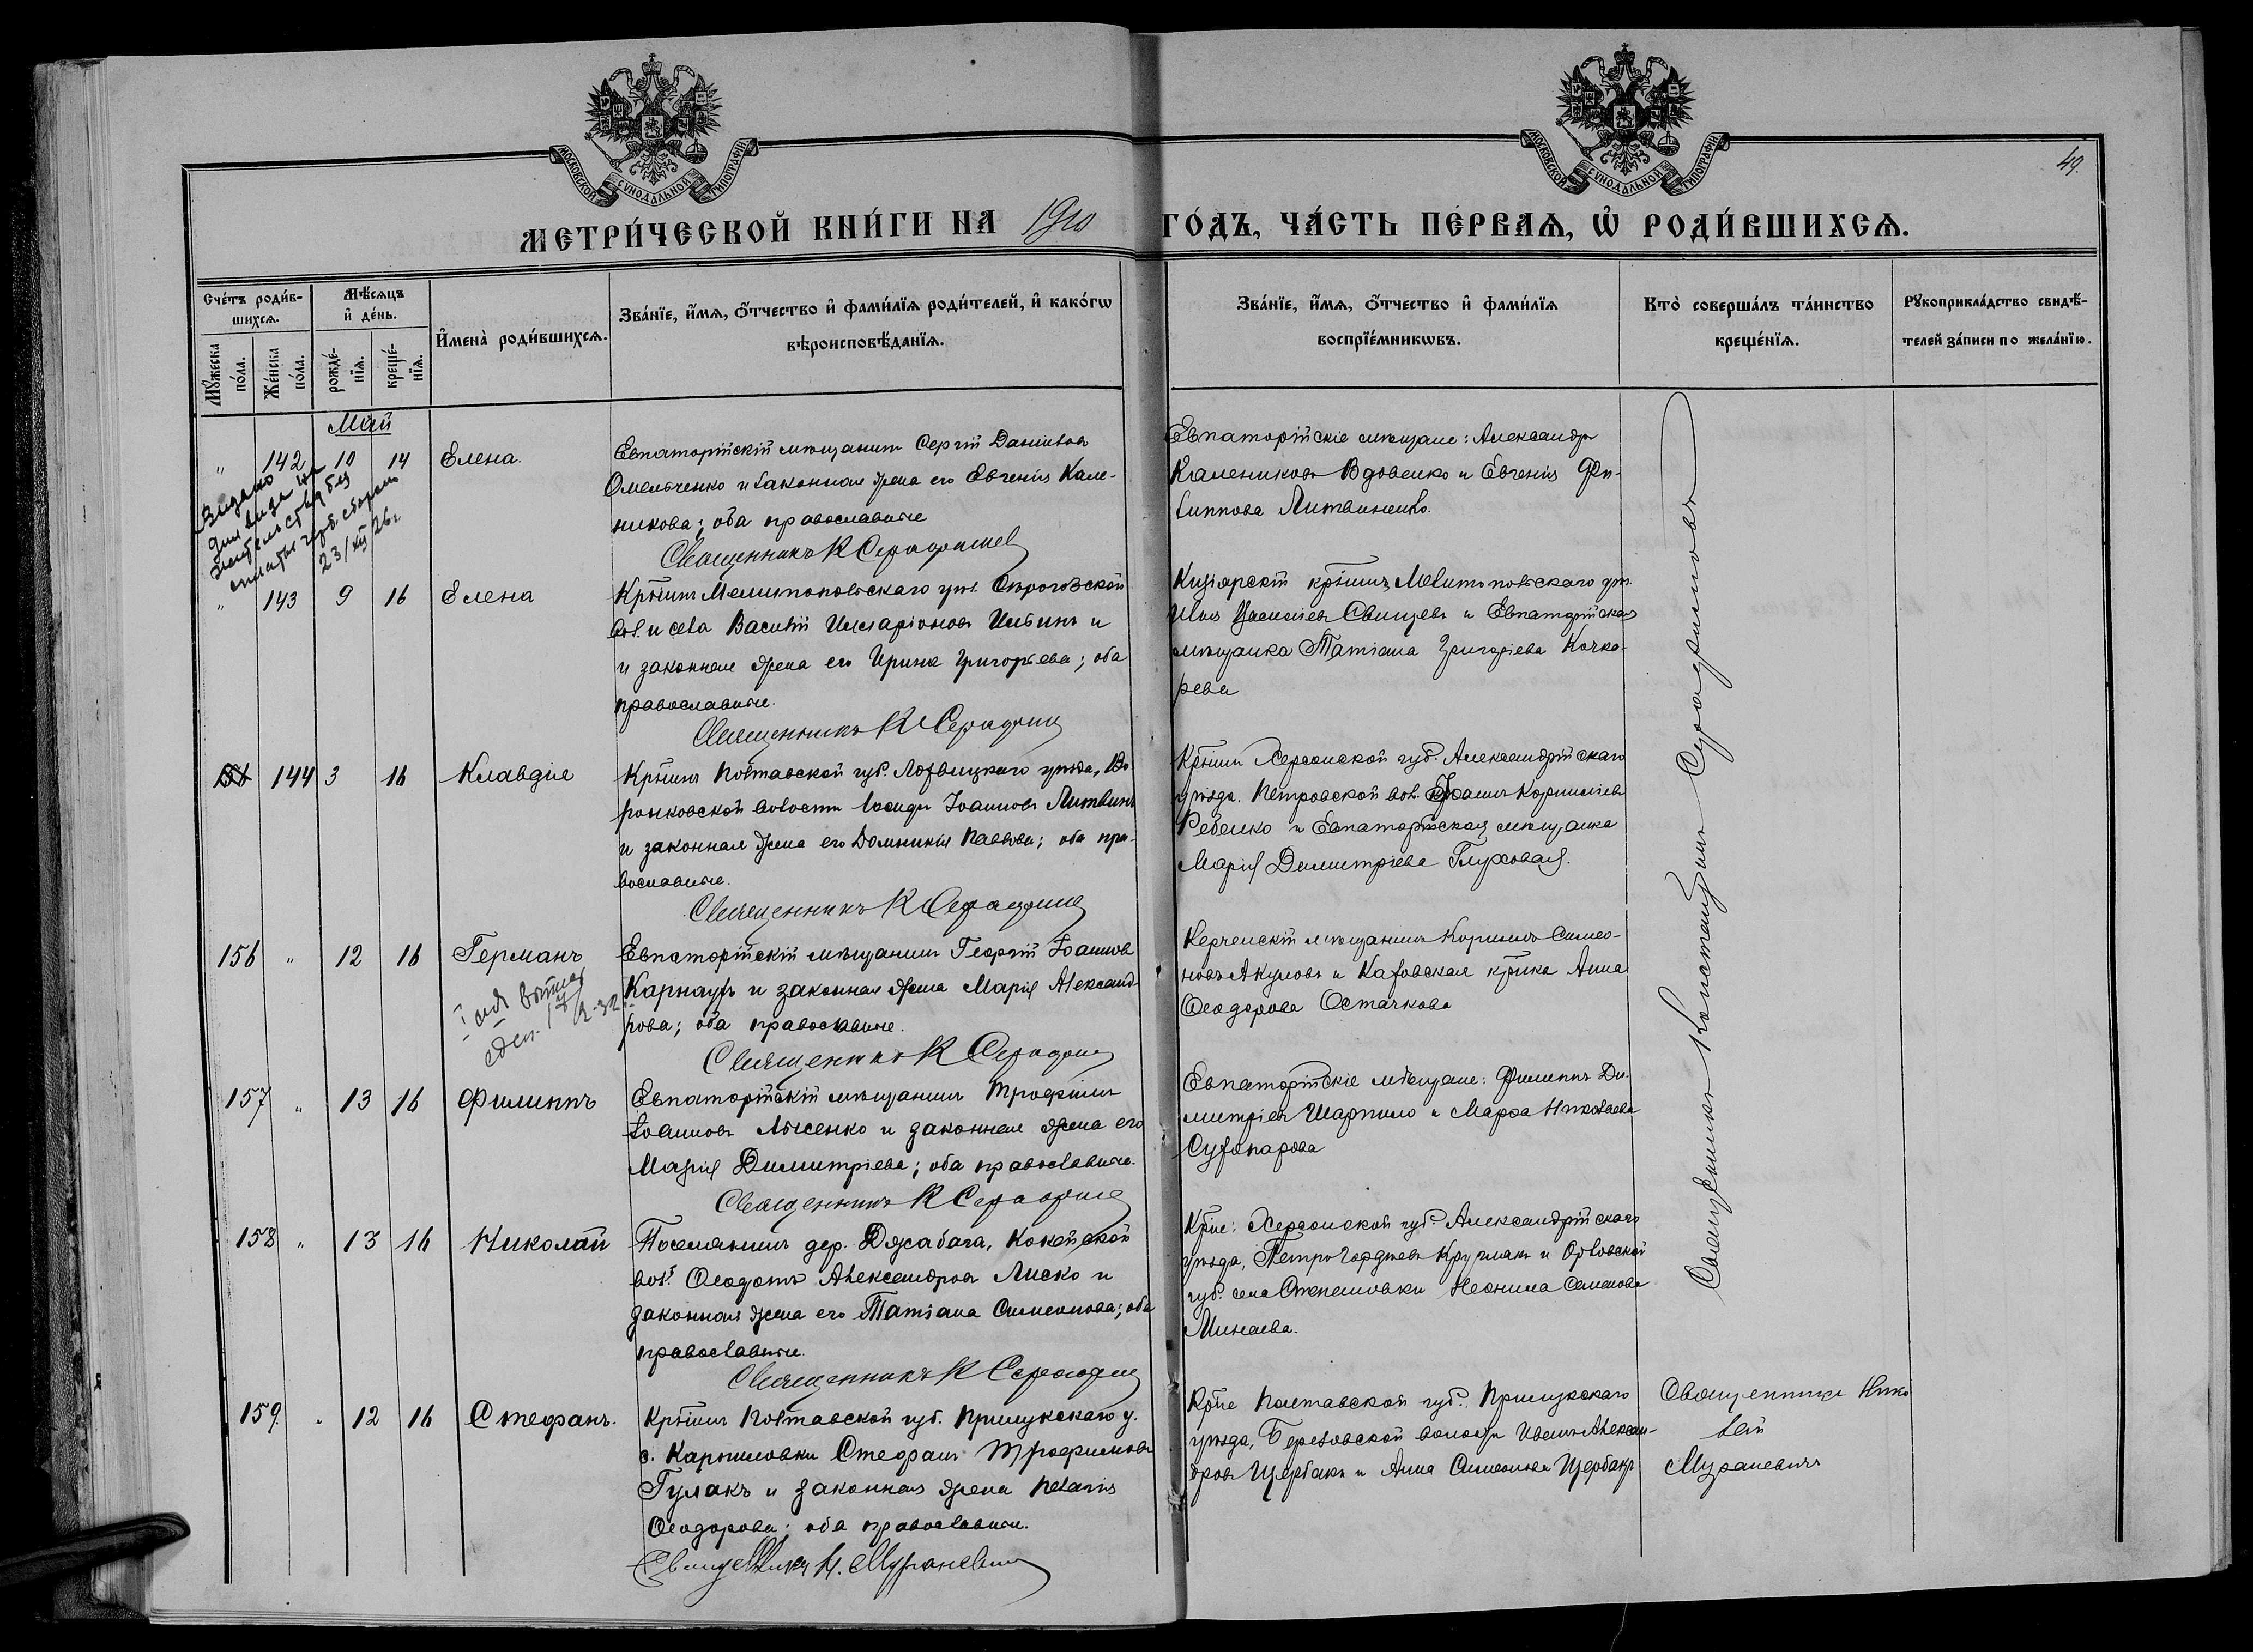 МОСКОВСКОЙ СѴНОДАЛЬНОЙ ТИПОГРАФІИ
МОСКОВСКОЙ СѴНОДАЛЬНОЙ ТИПОГРАФІИ
49.
МЕТРИ́ЧЕСКОЙ КНИ́ГИ НА 1910 ГО́ДЪ, ЧА́СТЬ ПЕ́РВАѦ, Ѡ҆ РОДИ́ВШИХСѦ.
Сче́тъ роди́в-
шихсѧ.
Мѣ́сѧцъ
и҆ де́нь.
И҆мена̀ роди́вшихсѧ.
Зва́нїе, и҆́мѧ, ѻ҆́тчество и҆ фами́лїѧ роди́телей, и҆ како́гѡ
вѣроисповѣ́данїѧ.
Зва́нїе, и҆́мѧ, ѻ҆́тчество и҆ фами́лїѧ
воспрїе́мникѡвъ.
Кто̀ соверша́лъ та́инство
креще́нїѧ.
Рꙋкоприкла́дство свидѣ́-
телей за́писи по жела́нїю.
Мꙋ́жеска
по́ла.
Же́нска
по́ла.
рожде́-
нїѧ.
креще́-
нїѧ.
Май
" 142 10 14 Елена.
Евпаторійскій мѣщанинъ Сергій Даніиловъ
Омельченко и законная жена его Евгенія Кале-
никова; оба православные
Священникъ К Серафимов
Евпаторійскіе мѣщане: Александръ
Калениковъ Вдовенко и Евгенія Фи-
липпова Литвиненко.
Выдано
для вида на
жительство без
оплаты герб. сбором
23/XII 26 г.
" 143 9 16 Елена
Кр҃нинъ Мелитопольскаго уѣз. Сѣрогозской
вол. и села Василій Илларіоновъ Ильинъ и
и законная жена его Ирина Григорьева; оба
православные.
Священникъ К Серафим
Кизіярскій кр҃нинъ Мелитопольскаго уѣз.
Илья Васильевъ Свинаревъ и Евпаторійская
мѣщанка Татіана Григоріева Кочка-
рева
144 3 16 Клавдія
Кр҃нинъ Полтавской губ. Лохвицкаго уѣзда, Во
ронковской волости Іоанновъ Литвинъ
и законная жена его Домникія Павлова; оба пра-
вославные.
Священникъ К Серафим
Кр҃нинъ Херсонской губ. Александрійскаго
уѣзда. Петровской вол. Іоаннъ Корниліевъ
Ребенко и Евпаторійская мѣщанка
Марія Димитріева Глуховая.
156 " 12 16 Германъ
Евпаторійскій мѣщанинъ Георгій Іоанновъ
Карнаухъ и законная жена Марія Александ-
рова; оба православные.
Священникъ К Серафим
Керченскій мѣщанинъ Корнилъ Симео-
новъ Акуловъ и Каховская кр҃нка Анна
Ѳеодорова Остачкова
157 " 13 16 Филиппъ
Евпаторійскій мѣщанинъ Трофимъ
Іоанновъ Лысенко и законная жена его
Марія Димитріева; оба православные.
Священникъ К Серафим
Евпаторійскіе мѣщане: Филиппъ Ди-
митріевъ Шарпило и Марѳа Николаева
Сухопарова
158 " 13 16 Николай
Поселянинъ дер. Джабага, Кокейской
вол. Ѳеодотъ Александровъ Лиско и
законная жена его Татіана Симеонова; оба
православные.
Священникъ К Серафим
Кр҃не: Херсонской губ. Александрійскаго
уѣзда, Петръ Гордѣевъ Круглякъ и Орловской
губ. села Степановки Неонила Семенова
Минаева.
Священникъ Константинъ Серафимовъ
159. " 12 16 Стефанъ.
Кр҃нинъ Полтавской губ. Прилукскаго у.
с. Карпиловки Стефанъ Трофимовъ
Гулакъ и законная жена Пелагія
Ѳеодорова; оба православные.
Священникъ Н. Мураневич
Кр҃не Полтавской губ. Прилукскаго
уѣзда, Березовской волости Иванъ Алексан-
дровъ Щербакъ и Анна Симеонова Щербакъ
Священникъ Нико
лай
Мураневичъ